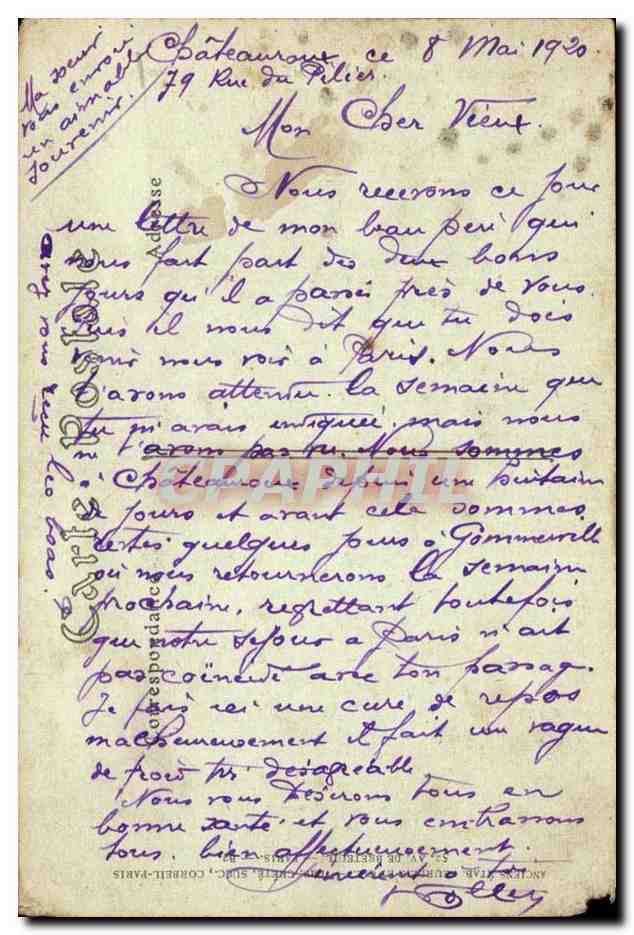 Châteauroux ce 8 Mai 1920
79 Rue du Pilier
Ma sœur
vous envoie
un aimable
souvenir.
Mon Cher Vieux.
Nous recevons ce jour
une lettre de mon beau peré qui
nous fait part des deux bons
jours qu'il a passé près de vous.
Puis il nous dit que tu dois
venir nous voir à Paris. Nous
t'avons attendu la semaine que
tu m'avais indiquée mais nous
ne t'avons pas vu. Nous sommes
à Châteauroux depuis une huitaine
de jours et avant cela sommes
restés quelques jours à Gommerville
où nous retournerons la semaine
prochaine, regrettant toutefois
que notre séjour a Paris n'ait
pas coïncidé avec ton passage.
Je fais ici une cure de repos
malheureusement il fait un vague
de froid très désagréable.
Nous vous désirons tous en
bonne santé et vous embrassons
tous. bien affectueusement.
avez vous reçu les
Carte Postale
Correspondance
Adresse
CPAPHIL
ANCIENS ETAB. NEURDEIN ET CIE. CRÉTÉ, SUCC., CORBEIL-PARIS
52, AV. DE BRETEUIL - PARIS